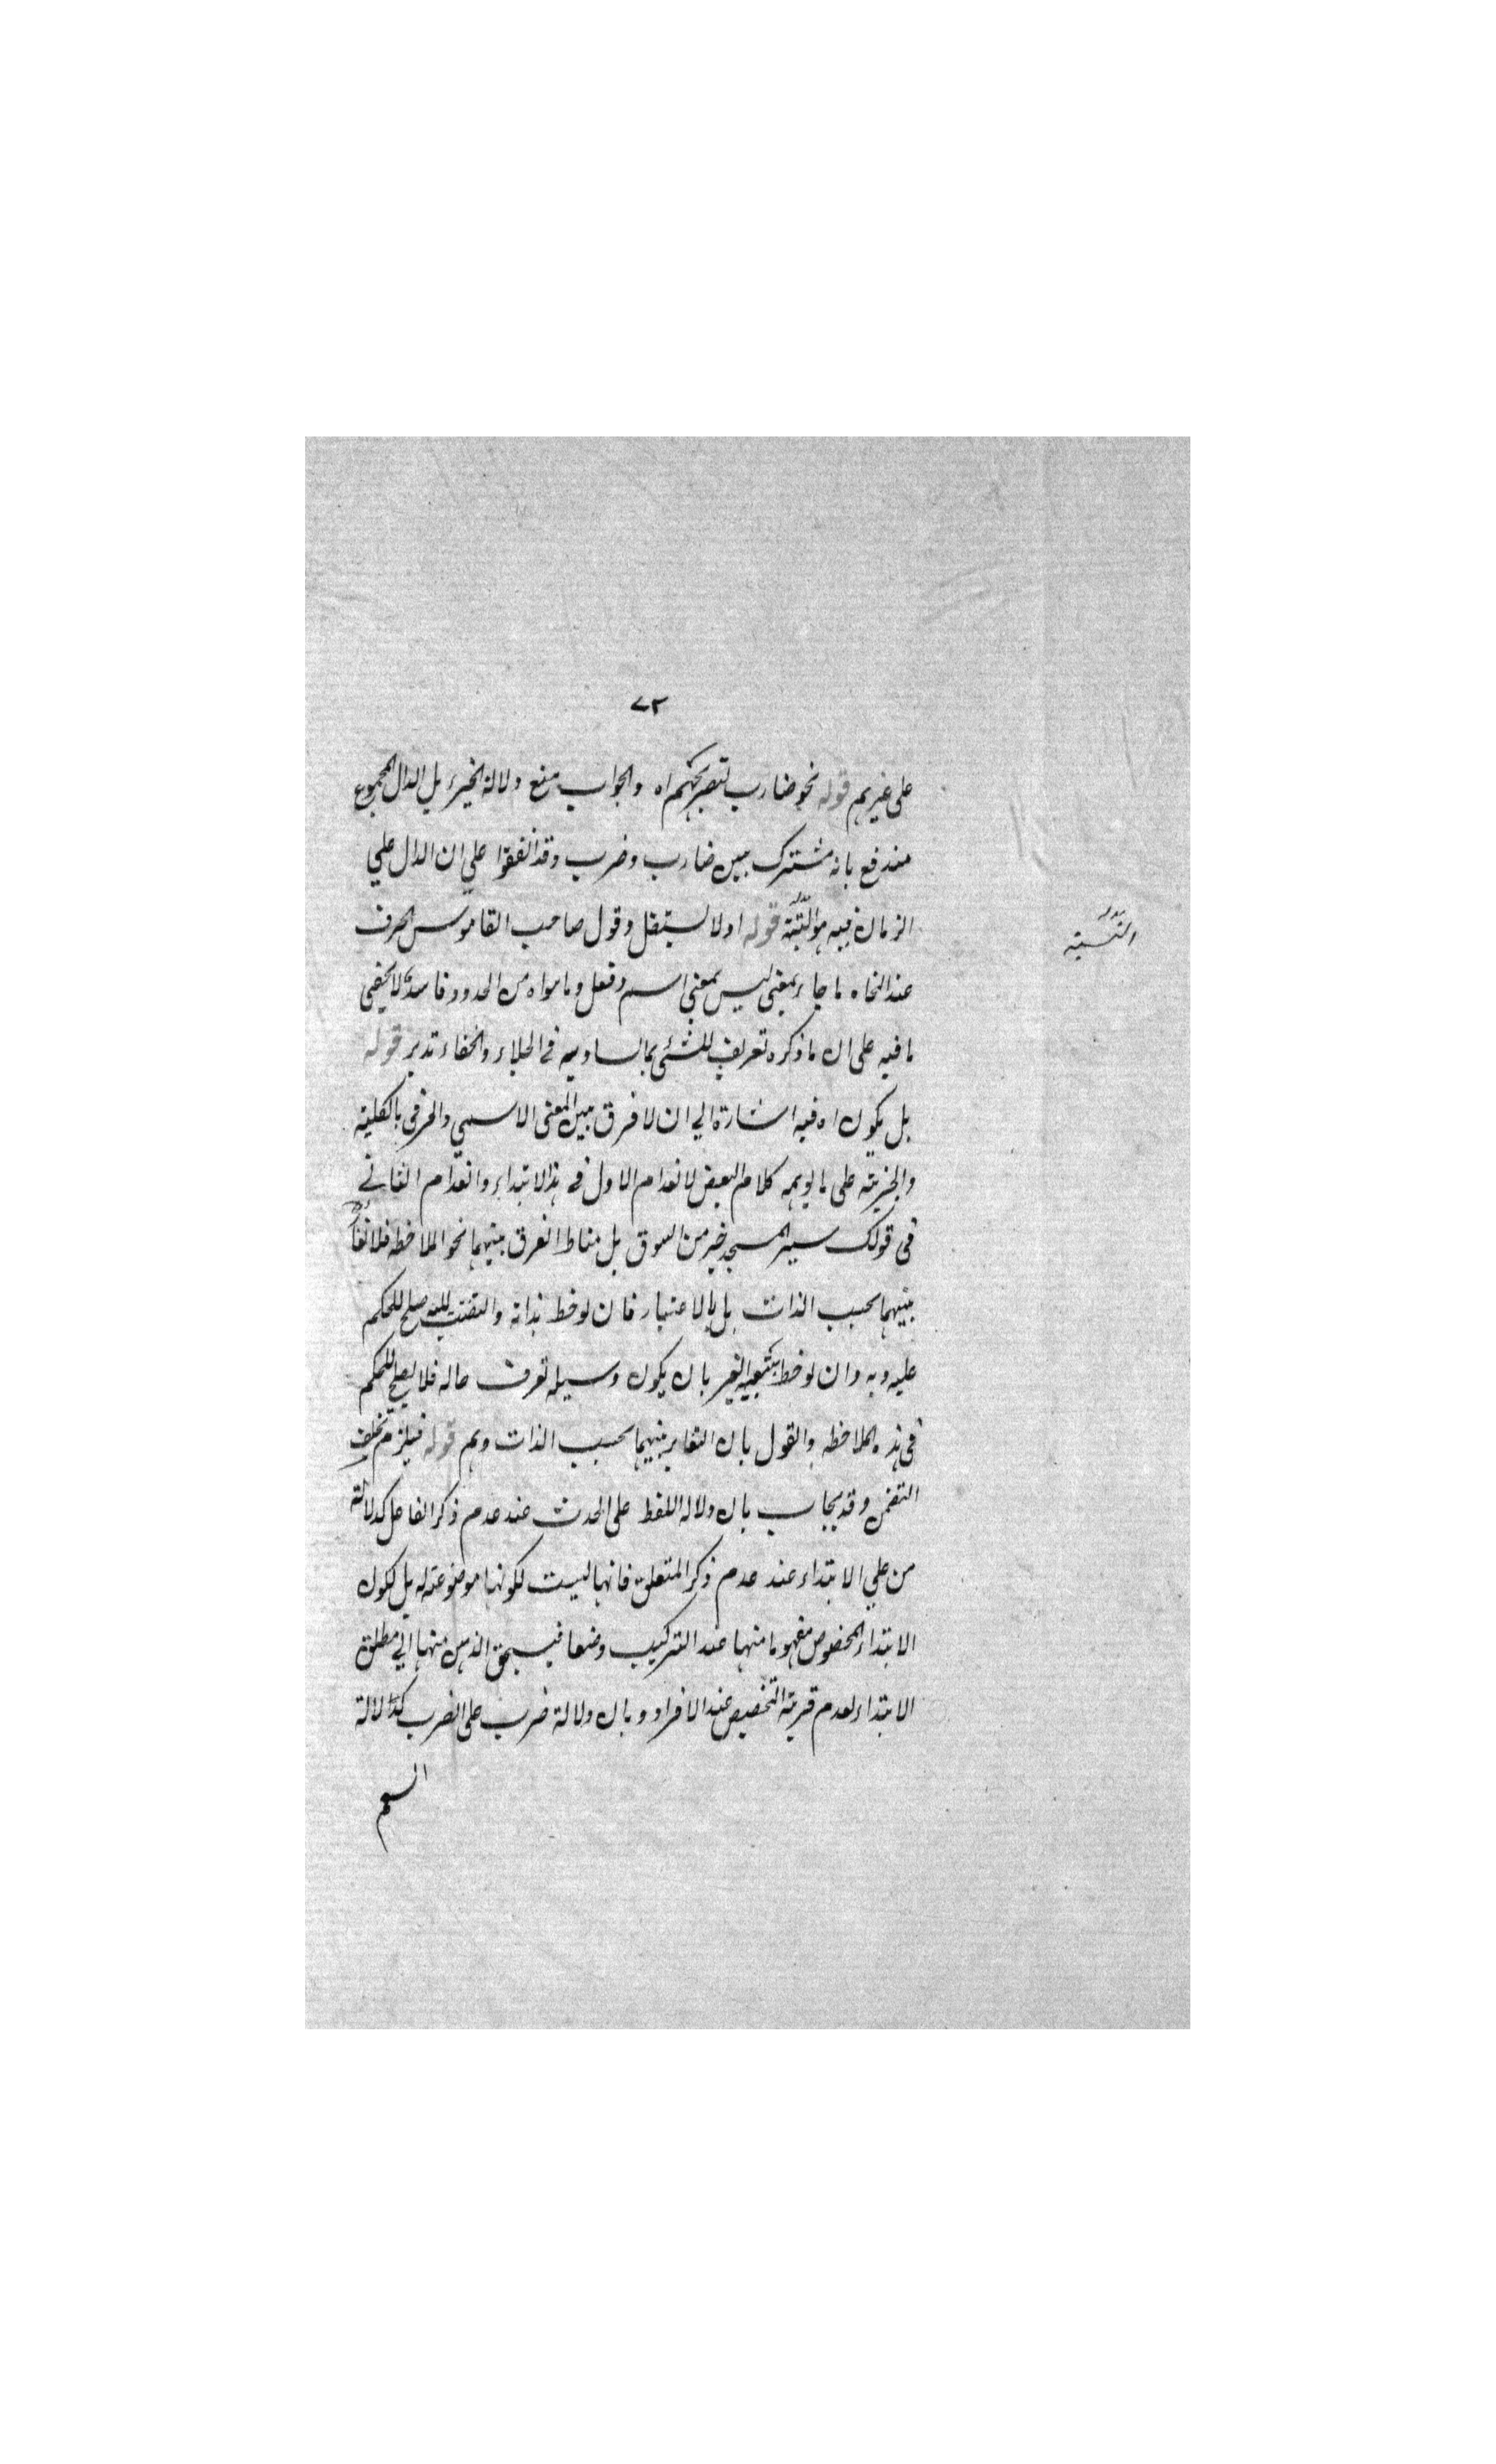 ٧٣
على غيرهم قوله نحو ضارب لتصريحهم اه والجواب بمنع دلالة الجزء بل الدال المجموع
مندفع بانه مشترك بين ضارب وضرب وقد اتفقوا علي ان الدال علي
الزمان فيه هو الهيئة قوله اولا يستقل وقول صاحب القاموس الحرف
عند النحاه ما جاء بمعنى ليس بمعنى اسم وفعل وما سواه من الحدود فاسد لا يخفى
ما فيه على ان ما ذكره تعريف للشئى بما يساويه في الجلاء والخفاء تدبر قوله
بل يكون اه فيه اشارة الي ان لا فرق بين المعنى الاسمي والحرفي بالكلية
والجزئية على ما يوهمه كلام البعض لانعدام الاول في هذا الابتداء وانعدام الثاني
في قولك سير المسجد خير من السوق بل مناط الفرق بينهما نحو الملاحظه فلا تغاير
بينهما بحسب الذات بل بالاعتبار فان لوحظ بذاته والتفت اليه صلح للحكم
عليه وبه وان لوحظ بتبعية الغير بان يكون وسيله تعرف حاله فلا يصلح للحكم
في هذه الملاحظه والقول بان التغاير بينهما بحسب الذات وهم قوله فيلزم تخلف
التضمن وقد يجاب بان دلاله اللفظ على الحدث عند عدم ذكر الفاعل كدلالة
من علي الابتداء عند عدم ذكر المتعلق فانها ليست لكونها موضوعة له بل لكون
الابتداء المخصوص مفهوما منها عند التركيب وضعا فيسبق الذهن منها الي مطلق
الابتداء لعدم قرينة التخصيص عند الافراد وبان دلالة ضرب على الضرب كدلالة